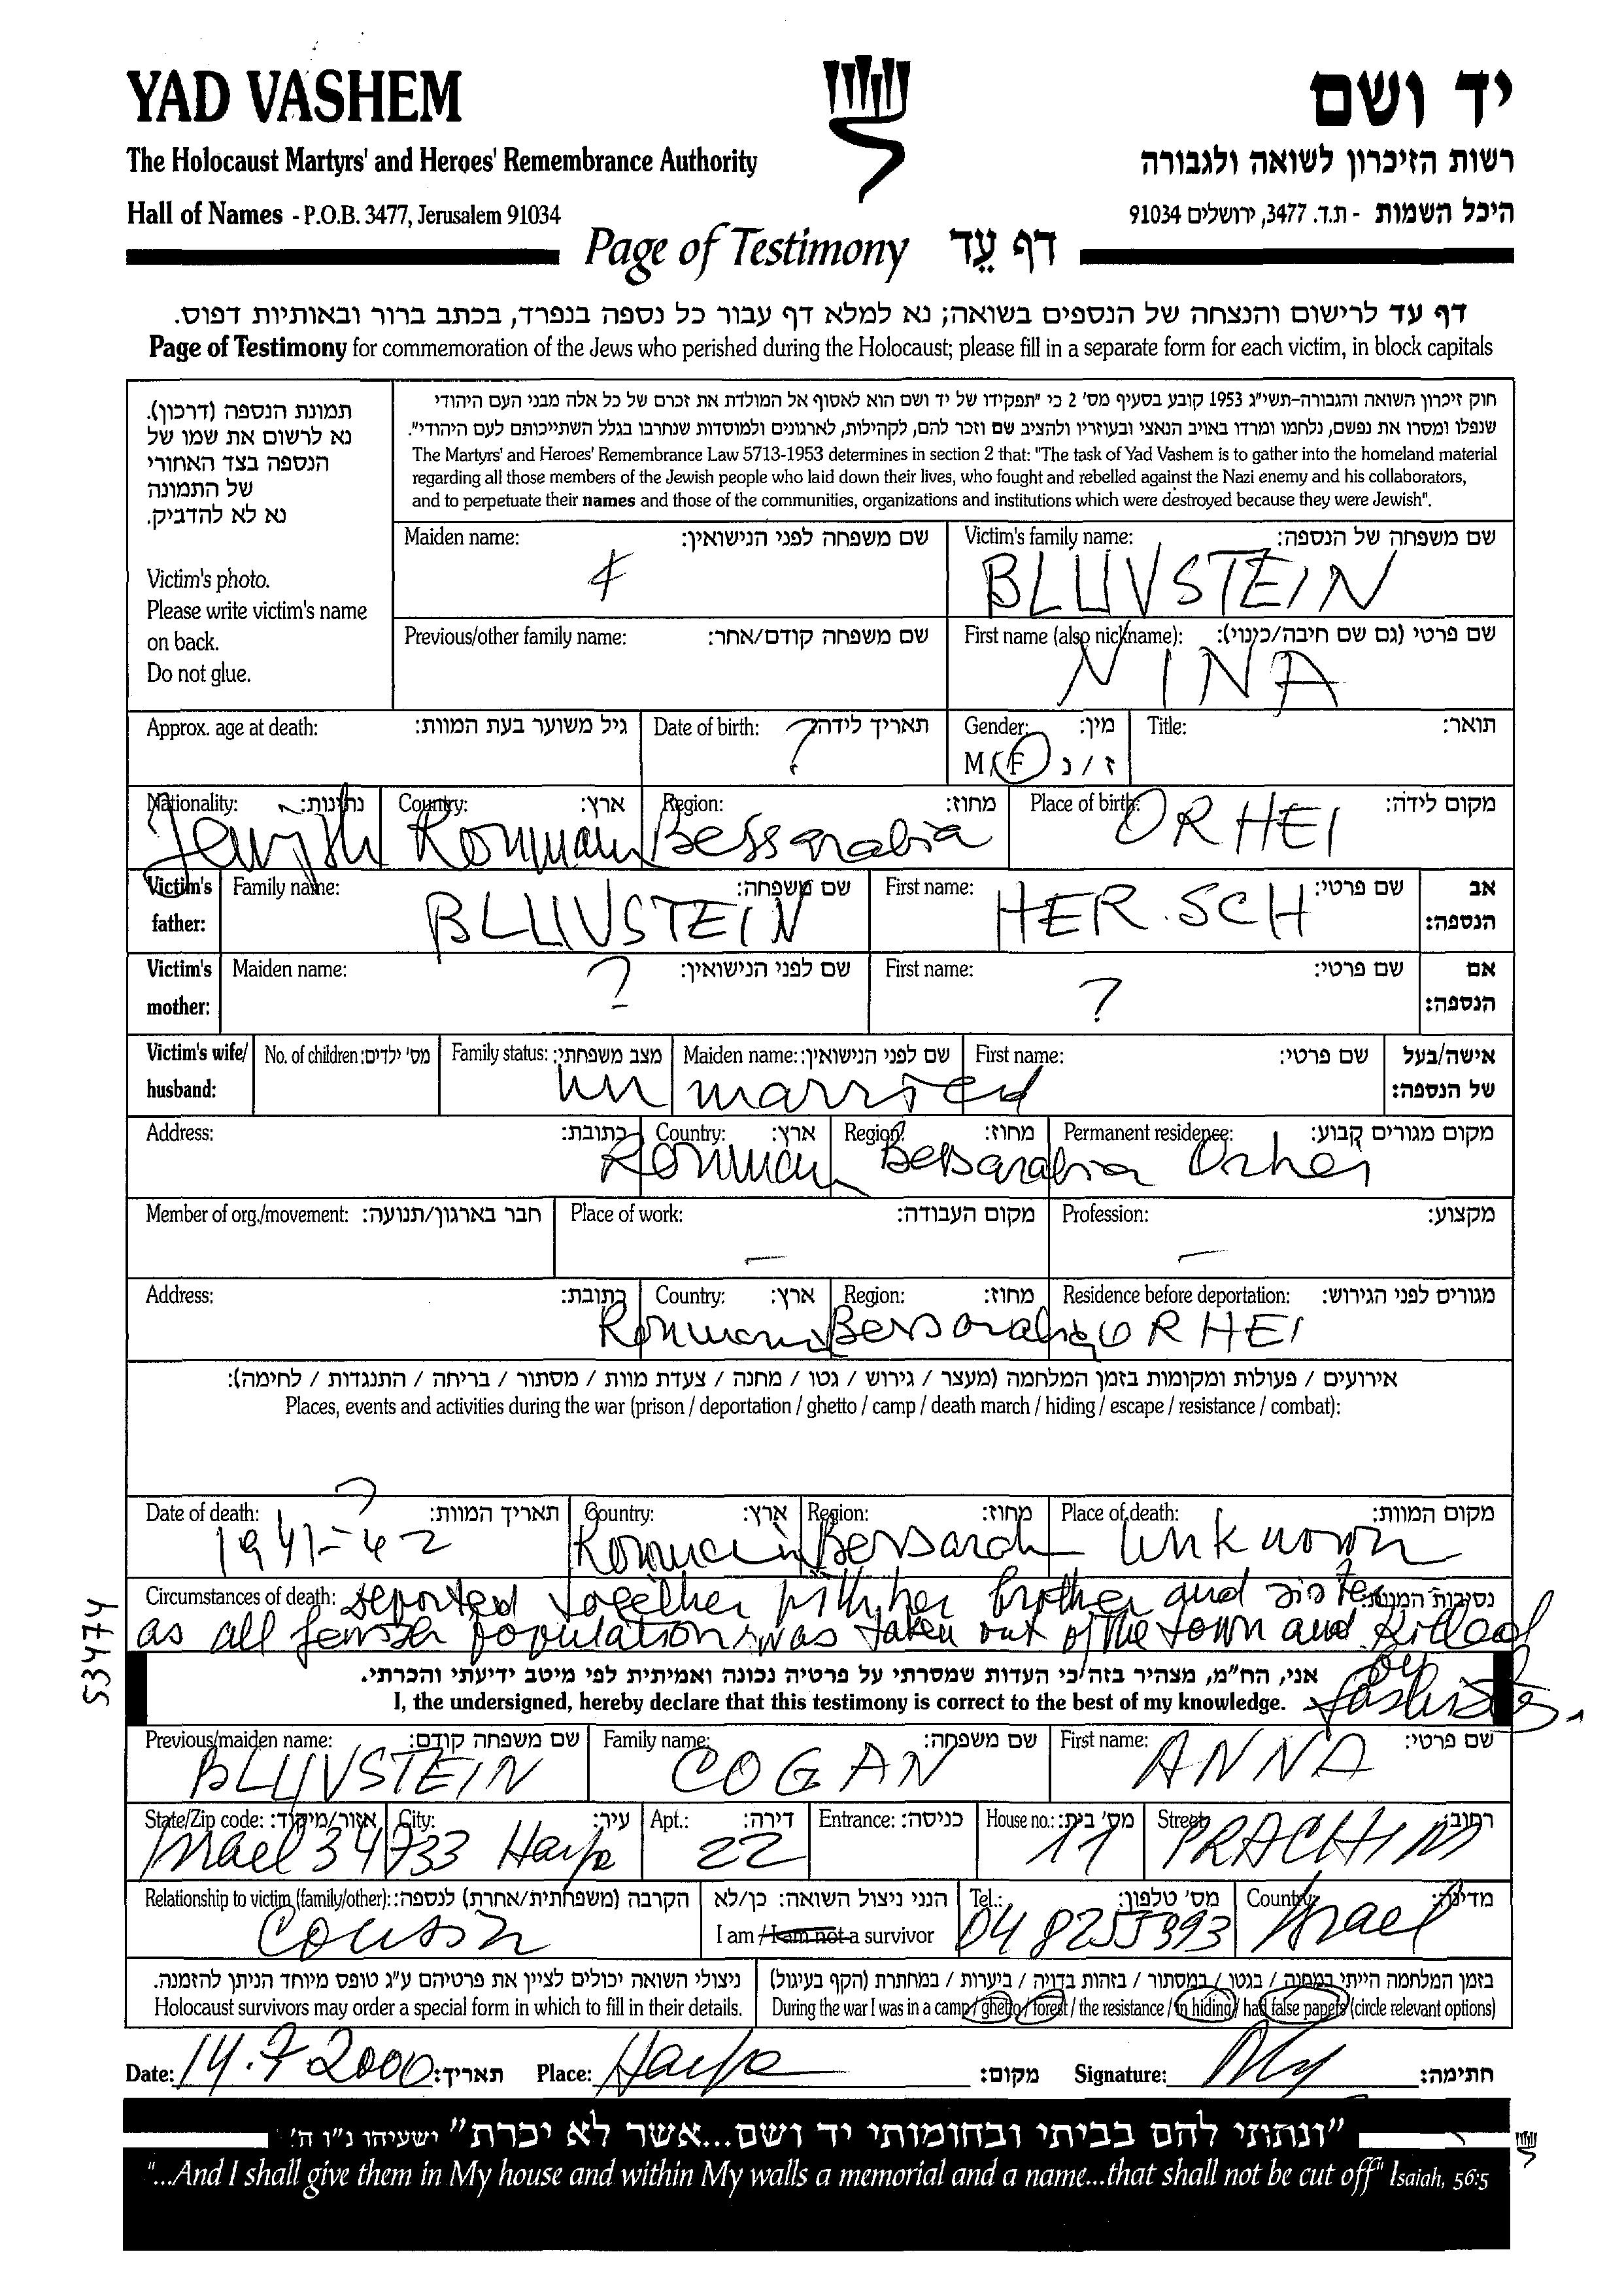 YAD VASHEM יד ושם
The Holocaust Martyrs' and Heroes' Remembrance Authority רשות הזיכרון לשואה ולגבורה
Hall of Names - P.O.B. 3477, Jerusalem 91034 היכל השמות - ת.ד. 3477, ירושלים 91034
Page of Testimony דף עֵד
דף עד לרישום והנצחה של הנספים בשואה; נא למלא דף עבור כל נספה בנפרד, בכתב ברור ובאותיות דפוס.
Page of Testimony for commemoration of the Jews who perished during the Holocaust; please fill in a separate form for each victim, in block capitals
תמונת הנספה (דרכון).
נא לרשום את שמו של
הנספה בצד האחורי
של התמונה
נא לא להדביק.
Victim's photo.
Please write victim's name
on back.
Do not glue.
חוק זיכרון השואה והגבורה-תשי"ג 1953 קובע בסעיף מס' 2 כי "תפקידו של יד ושם הוא לאסוף אל המולדת את זכרם של כל אלה מבני העם היהודי
שנפלו ומסרו את נפשם, נלחמו ומרדו באויב הנאצי ובעוזריו ולהציב שם וזכר להם, לקהילות, לארגונים ולמוסדות שנחרבו בגלל השתייכותם לעם היהודי".
The Martyrs' and Heroes' Remembrance Law 5713-1953 determines in section 2 that: "The task of Yad Vashem is to gather into the homeland material
regarding all those members of the Jewish people who laid down their lives, who fought and rebelled against the Nazi enemy and his collaborators,
and to perpetuate their names and those of the communities, organizations and institutions which were destroyed because they were Jewish".
Maiden name: שם משפחה לפני הנישואין: Victim's family name: שם משפחה של הנספה:
BLUVSTEIN
Previous/other family name: שם משפחה קודם/אחר: First name (also nickname): שם פרטי (גם שם חיבה/כינוי):
NINA
Approx. age at death: גיל משוער בעת המוות: Date of birth: ? תאריך לידה: Gender: מין: Title: תואר:
M / F ז / נ
Nationality: נתינות: Country: ארץ: Region: מחוז: Place of birth: מקום לידה:
Jewish Bessarabia ORHEI
Victim's father: Family name: שם משפחה: First name: שם פרטי: אב הנספה:
BLUVSTEIN HER.SCH
Victim's mother: Maiden name: שם לפני הנישואין: First name: שם פרטי: אם הנספה:
? ?
Victim's wife/ husband: No. of children: מס' ילדים: Family status: מצב משפחתי: Maiden name: שם לפני הנישואין: First name: שם פרטי: אישה/בעל של הנספה:
un married
Address: כתובת: Country: ארץ: Region: מחוז: Permanent residence: מקום מגורים קבוע:
Bessarabia Orhei
Member of org./movement: חבר בארגון/תנועה: Place of work: מקום העבודה: Profession: מקצוע:
— —
Address: כתובת: Country: ארץ: Region: מחוז: Residence before deportation: מגורים לפני הגירוש:
Bessarabia ORHEI
אירועים / פעולות ומקומות בזמן המלחמה (מעצר / גירוש / גטו / מחנה / צעדת מוות / מסתור / בריחה / התנגדות / לחימה):
Places, events and activities during the war (prison / deportation / ghetto / camp / death march / hiding / escape / resistance / combat):
Date of death: ? תאריך המוות: Country: ארץ: Region: מחוז: Place of death: מקום המוות:
1941-42 Unknown
Circumstances of death: deported together with her brother and sister נסיבות המוות:
as all Jewish population was taken out of the town and killed
by fashists.
53474
אני, הח"מ, מצהיר בזה כי העדות שמסרתי על פרטיה נכונה ואמיתית לפי מיטב ידיעתי והכרתי.
I, the undersigned, hereby declare that this testimony is correct to the best of my knowledge.
Previous/maiden name: שם משפחה קודם: Family name: שם משפחה: First name: שם פרטי:
BLUVSTEIN COGAN ANNA
State/Zip code: אזור/מיקוד: City: עיר: Apt.: דירה: Entrance: כניסה: House no.: מס' בית: Street: רחוב:
Israel 34733 Haifa 22 11 PRACHIM
Relationship to victim (family/other): הקרבה (משפחתית/אחרת) לנספה: הנני ניצול השואה: כן/לא Tel.: מס' טלפון: Country: מדינה:
Cousin I am / I am not a survivor 04 8255393 Israel
ניצולי השואה יכולים לציין את פרטיהם ע"ג טופס מיוחד הניתן להזמנה. בזמן המלחמה הייתי במחנה / בגטו / במסתור / בזהות בדויה / ביערות / במחתרת (הקף בעיגול)
Holocaust survivors may order a special form in which to fill in their details. During the war I was in a camp / ghetto / forest / the resistance / in hiding / had false papers (circle relevant options)
Date: 14.7.2000 תאריך: Place: Haifa מקום: Signature: חתימה:
"ונתתי להם בביתי ובחומותי יד ושם...אשר לא יכרת" ישעיהו נ"ו ה'
"...And I shall give them in My house and within My walls a memorial and a name...that shall not be cut off" Isaiah, 56:5